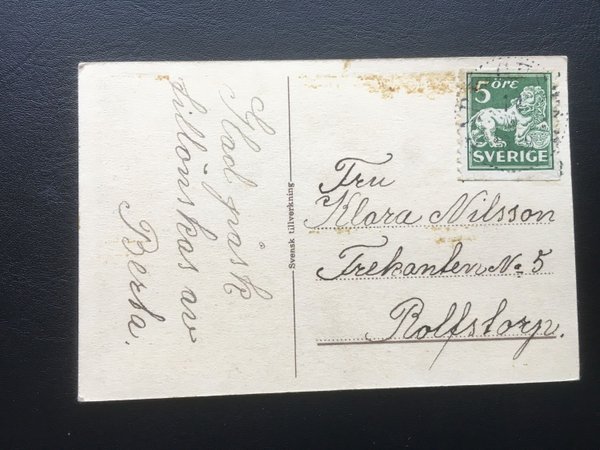 Glad påsk
tillönskas av
Berta.
Svensk tillverkning
5 ÖRE
SVERIGE
Fru
Klara Nilsson
Trekanten No 5
Rolfstorp.